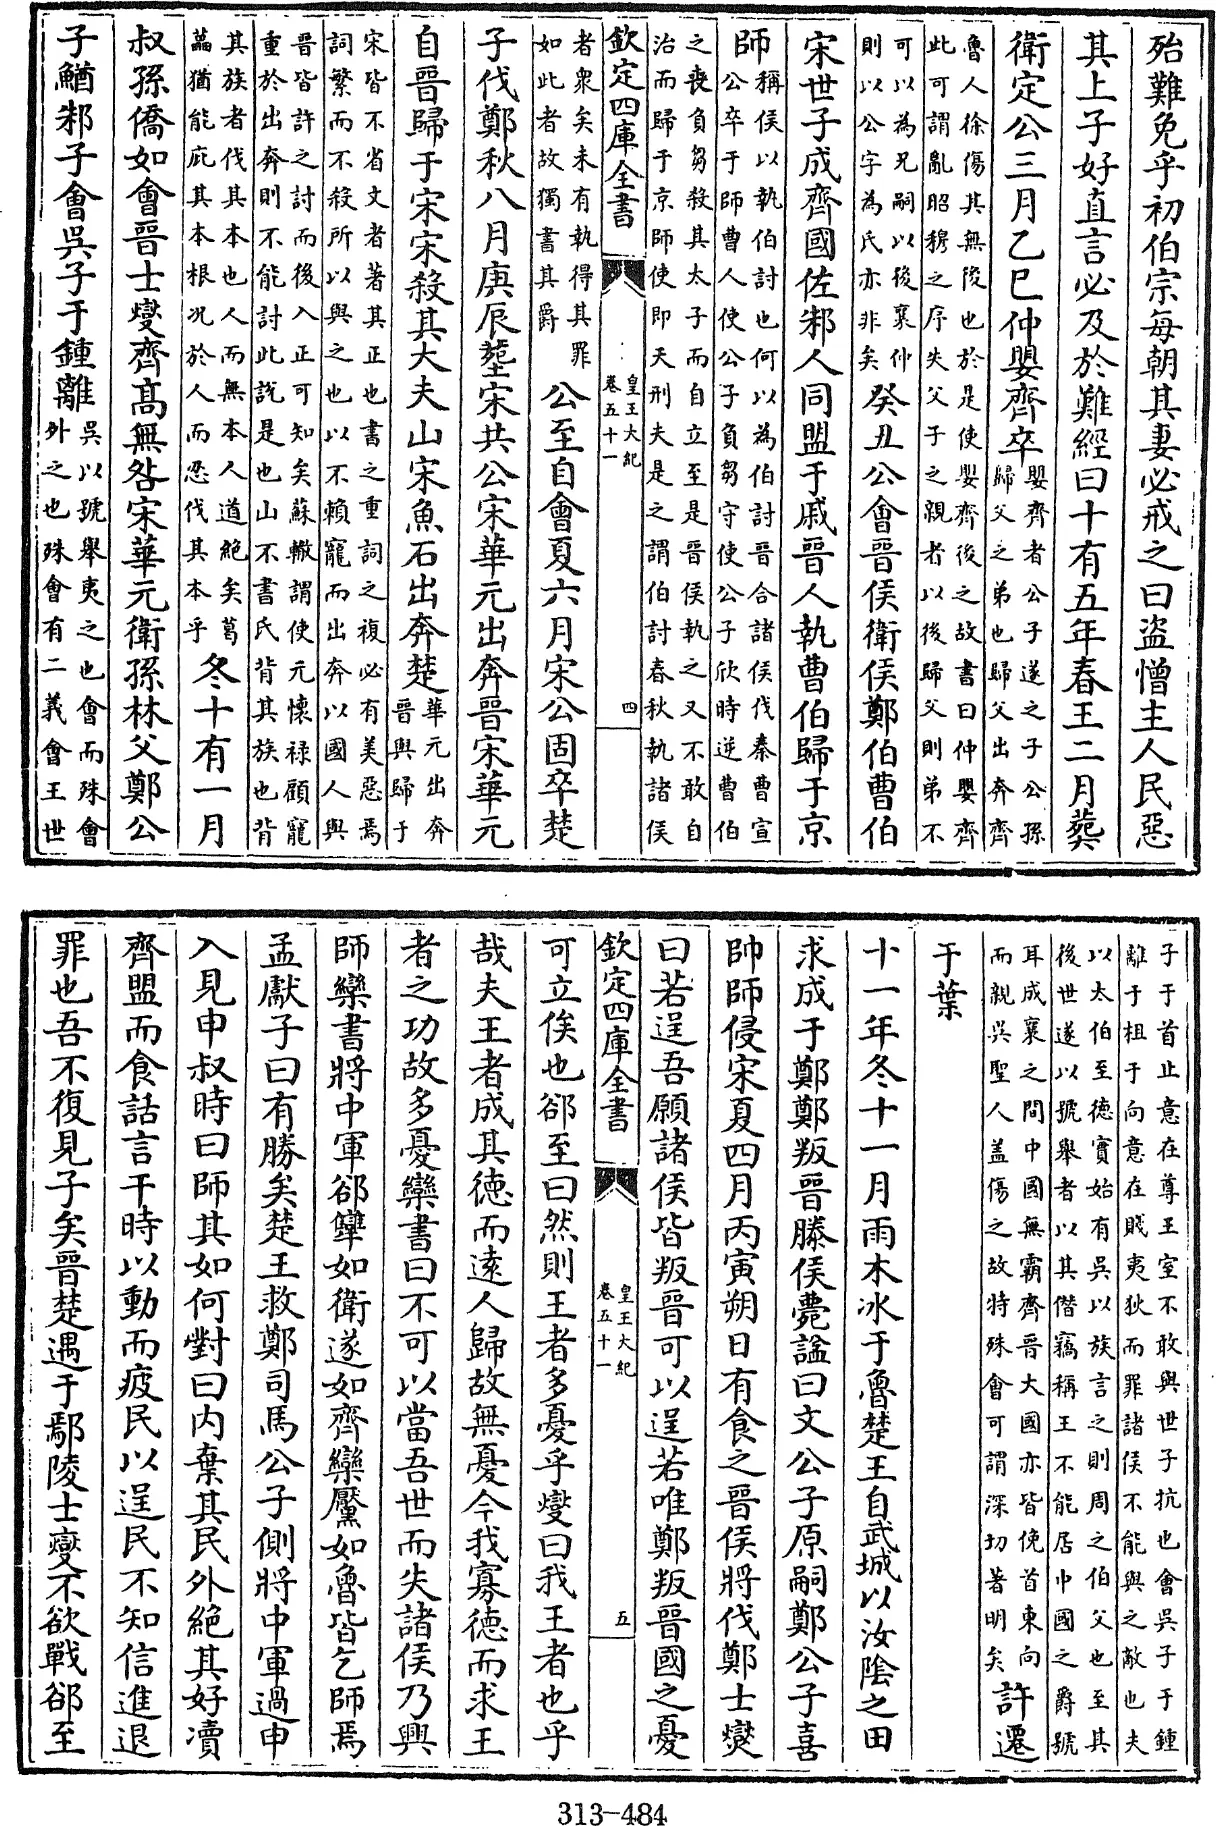 殆難免乎初伯宗每朝其妻必戒之曰盜憎主人民惡
其上子好直言必及於難經曰十有五年春王二月葬
衛定公三月乙巳仲嬰齊卒嬰齊者公子遂之子公孫
歸父之弟也歸父出奔齊
魯人徐傷其無後也於是使嬰齊後之故書曰仲嬰齊
此可謂亂昭穆之序失父子之親者以後歸父則弟不
可以為兄嗣以後襄仲
則以公字為氏亦非矣癸丑公會晉侯衛侯鄭伯曹伯
宋世子成齊國佐邾人同盟于戚晉人執曹伯歸于京
師稱侯以執伯討也何以為伯討晉合諸侯伐秦曹宣
公卒于師曹人使公子負芻守使公子欣時逆曹伯
之喪負芻殺其太子而自立至是晉侯執之又不敢自
治而歸于京師使即天刑夫是之謂伯討春秋執諸侯
欽定四庫全書
皇王大紀
卷五十一
四
者衆矣未有執得其罪
如此者故獨書其爵公至自會夏六月宋公固卒楚
子伐鄭秋八月庚辰葬宋共公宋華元出奔晉宋華元
自晉歸于宋宋殺其大夫山宋魚石出奔楚華元出奔
晉與歸于
宋皆不省文者著其正也書之重詞之複必有美惡焉
詞繁而不殺所以與之也以不賴寵而出奔以國人與
晉皆許之討而後入正可知矣蘇轍謂使元懷祿顧寵
重於出奔則不能討此說是也山不書氏背其族也背
其族者伐其本也人而無本人道絕矣葛
藟猶能庇其本根况於人而忍伐其本乎冬十有一月
叔孫僑如會晉士燮齊高無咎宋華元衛孫林父鄭公
子鰌邾子會吳子于鍾離吳以號舉夷之也會而殊會
外之也殊會有二義會王世
子于首止意在尊王室不敢與世子抗也會吳子于鍾
離于柤于向意在賤夷狄而罪諸侯不能與之敵也夫
以太伯至德實始有吳以族言之則周之伯父也至其
後世遂以號舉者以其僭竊稱王不能居中國之爵號
耳成襄之間中國無霸齊晉大國亦皆俛首東向
而親吳聖人盖傷之故特殊會可謂深切著明矣許遷
于葉
十一年冬十一月雨木冰于魯楚王自武城以汝陰之田
求成于鄭鄭叛晉滕侯薨謚曰文公子原嗣鄭公子喜
帥師侵宋夏四月丙寅朔日有食之晉侯將伐鄭士燮
曰若逞吾願諸侯皆叛晉可以逞若唯鄭叛晉國之憂
欽定四庫全書
皇王大紀
卷五十一
五
可立俟也郤至曰然則王者多憂乎燮曰我王者也乎
哉夫王者成其德而遠人歸故無憂今我寡德而求王
者之功故多憂欒書曰不可以當吾世而失諸侯乃興
師欒書將中軍郤犨如衛遂如齊欒黶如魯皆乞師焉
孟獻子曰有勝矣楚王救鄭司馬公子側將中軍過申
入見申叔時曰師其如何對曰内棄其民外絕其好瀆
齊盟而食話言干時以動而疲民以逞民不知信進退
罪也吾不復見子矣晉楚遇于鄢陵士燮不欲戰郤至
313-484